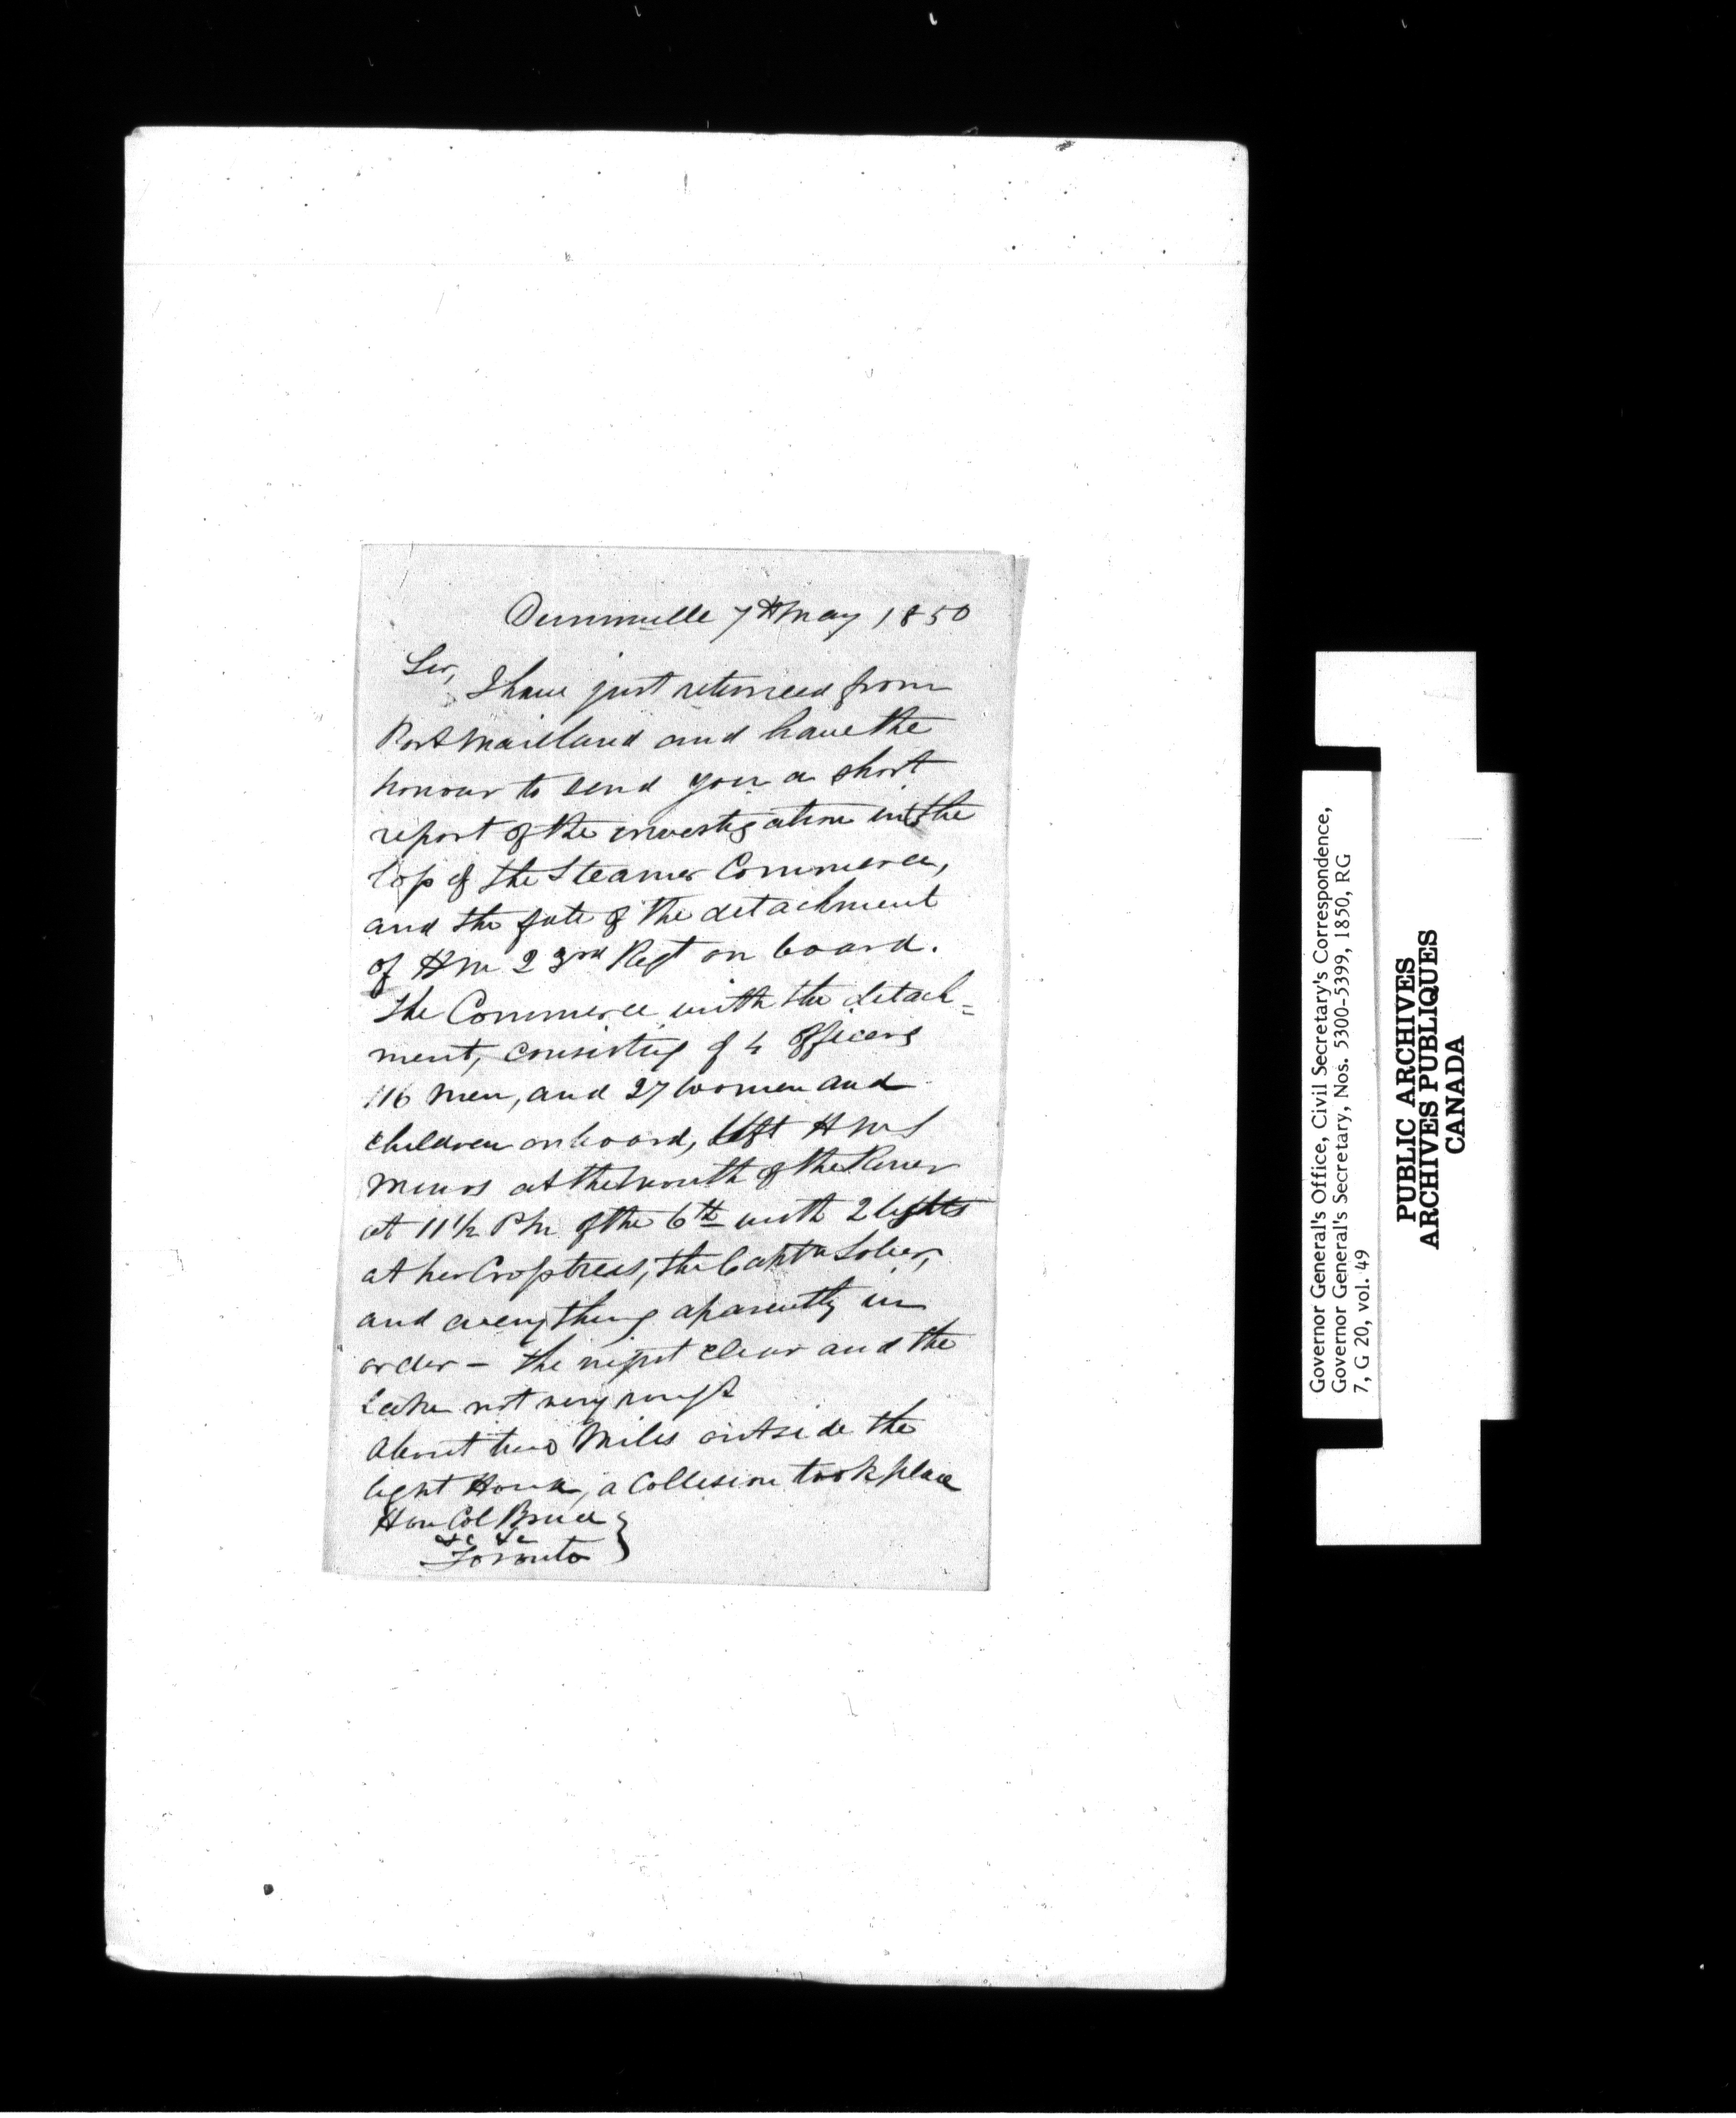 Dunnville 7th May 1850
Sir,
I have just returned from
Port Maitland and have the
honour to send you a short
report of the investigation into the
loss of the Steamer Commerce,
and the fate of the detachment
of HM 23rd Regt on board.
The Commerce with the detach=
ment, consisting of 4 officers
116 men, and 27 women and
children on board, left HMS
Minos at the mouth of the River
at 11½ PM of the 6th with 2 lights
at her Crosstrees, the Captn Sober,
and everything aparently in
order – the night clear and the
Lake not very rough
About two Miles outside the
light House, a Collision took place
Hon Col Bruce
&c &c
Toronto
Governor General's Office, Civil Secretary's Correspondence,
Governor General's Secretary, Nos. 5300-5399, 1850, RG
7, G 20, vol. 49
PUBLIC ARCHIVES
ARCHIVES PUBLIQUES
CANADA